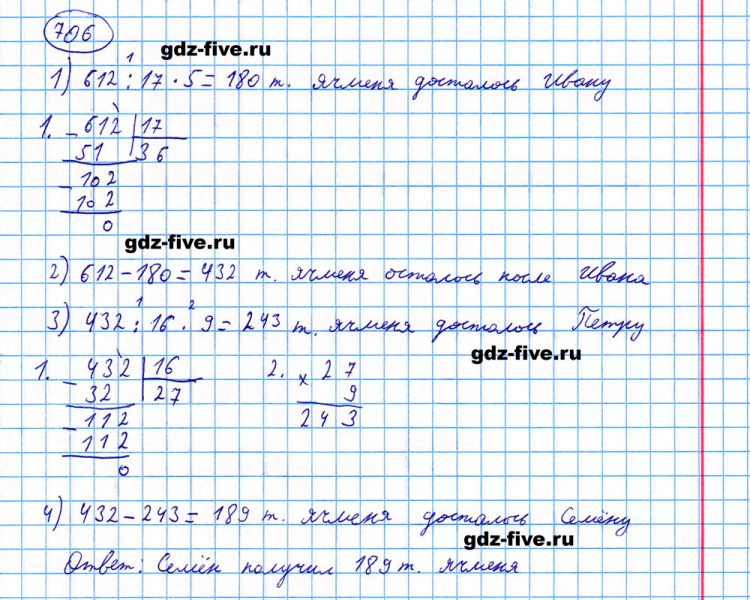 706
gdz-five.ru
1) 612 : 17 · 5 = 180 т. ячменя досталось Ивану
1. - 612 | 17
51 | 36
- 102
102
0
gdz-five.ru
2) 612 - 180 = 432 т. ячменя осталось после Ивана
3) 432 : 16 · 9 = 243 т. ячменя досталось Петру
gdz-five.ru
1. - 432 | 16
32 | 27
- 112
112
0
2. × 27
9
243
4) 432 - 243 = 189 т. ячменя досталось Семёну
gdz-five.ru
Ответ: Семён получил 189 т. ячменя
gdz-five.ru